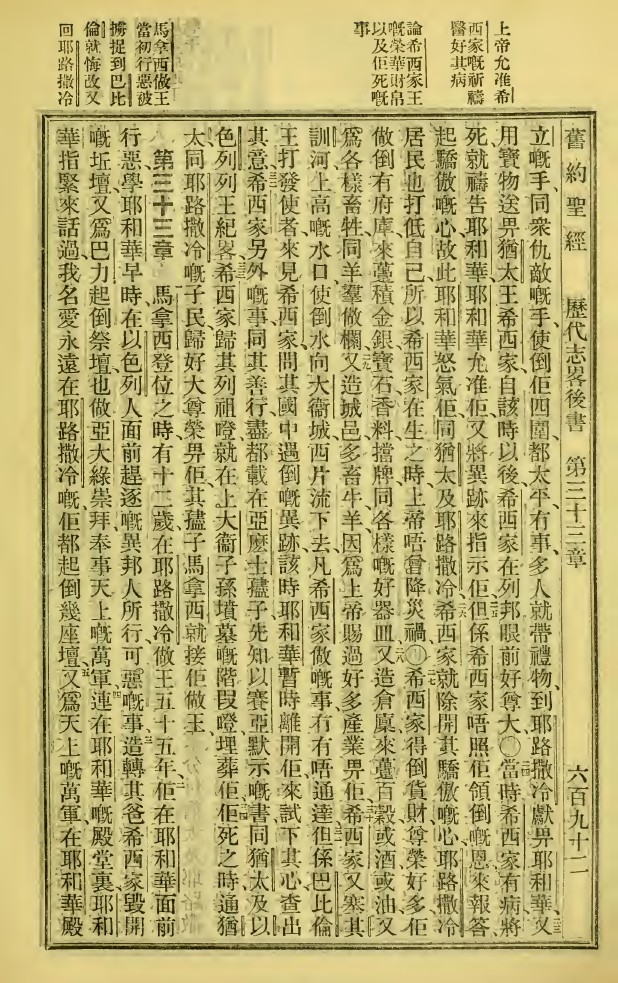 上帝允准希
西家嘅祈禱
醫好其病
論希西家王
嘅榮華財帛
以及佢死嘅
事
馬拿西做王
當初行惡被
擄捉到巴比
倫就悔改又
回耶路撒冷
舊約聖經 歷代志畧後書 第三十三章 六百九十二
立嘅手同衆仇敵嘅手使倒佢四圍都太平冇事多人就帶禮物到耶路撒冷獻畀耶和華又
用寶物送畀猶太王希西家自該時以後希西家在列邦眼前好尊大〇當時希西家有病將
死就禱告耶和華耶和華允准佢又將異跡來指示佢但係希西家唔照佢領倒嘅恩來報答
起驕傲嘅心故此耶和華怒氣佢同猶太及耶路撒冷希西家就除開其驕傲嘅心耶路撒冷
居民也打低自己所以希西家在生之時上帝唔曾降災禍〇希西家得倒貨財尊榮好多佢
做倒有府庫來蘉積金銀寶石香料擋牌同各樣嘅好器皿又造倉廪來蘉百穀或酒或油又
爲各樣畜牲同羊羣做欄又造城邑多畜牛羊因爲上帝賜過好多產業畀佢希西家又塞其
訓河上高嘅水口使倒水向大衞城西片流下去凡希西家做嘅事冇有唔通達但係巴比倫
王打發使者來見希西家問其國中遇倒嘅異跡該時耶和華暫時離開佢來試下其心查出
其意希西家另外嘅事同其善行盡都載在亞麽士孻子先知以賽亞默示嘅書同猶太及以
色列列王紀畧希西家歸其列祖噔就在上大衞子孫墳墓嘅階段噔埋葬佢佢死之時通猶
太同耶路撒冷嘅子民歸好大尊榮畀佢其孻子馬拿西就接佢做王
第三十三章 馬拿西登位之時有十二歲在耶路撒冷做王五十五年佢在耶和華面前
行惡學耶和華早時在以色列人面前趕逐嘅異邦人所行可惡嘅事造轉其爸希西家毀開
嘅坵壇又爲巴力起倒祭壇也做亞大綠崇拜奉事天上嘅萬軍連在耶和華嘅殿堂裏耶和
華指緊來話過我名愛永遠在耶路撒冷嘅佢都起倒幾座壇又爲天上嘅萬軍在耶和華殿